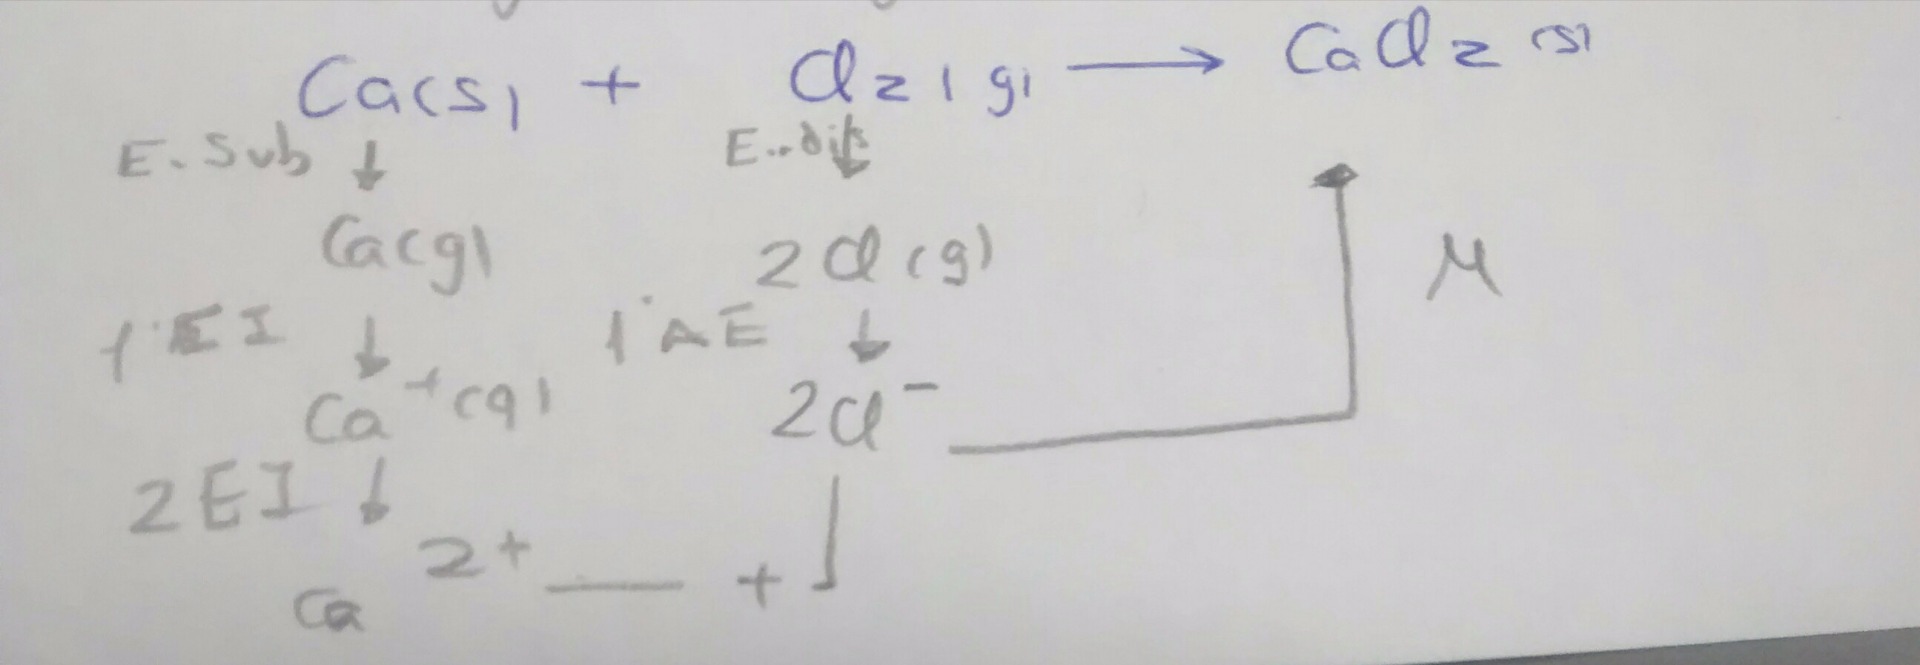 Ca(s) + Cl2(g) → CaCl2(s)
E. Sub ↓ E. dis ↓
Ca(g) 2Cl(g)
1ªEI ↓ 1ªAE ↓ μ
Ca+(g) 2Cl-
2EI ↓
Ca2+ +